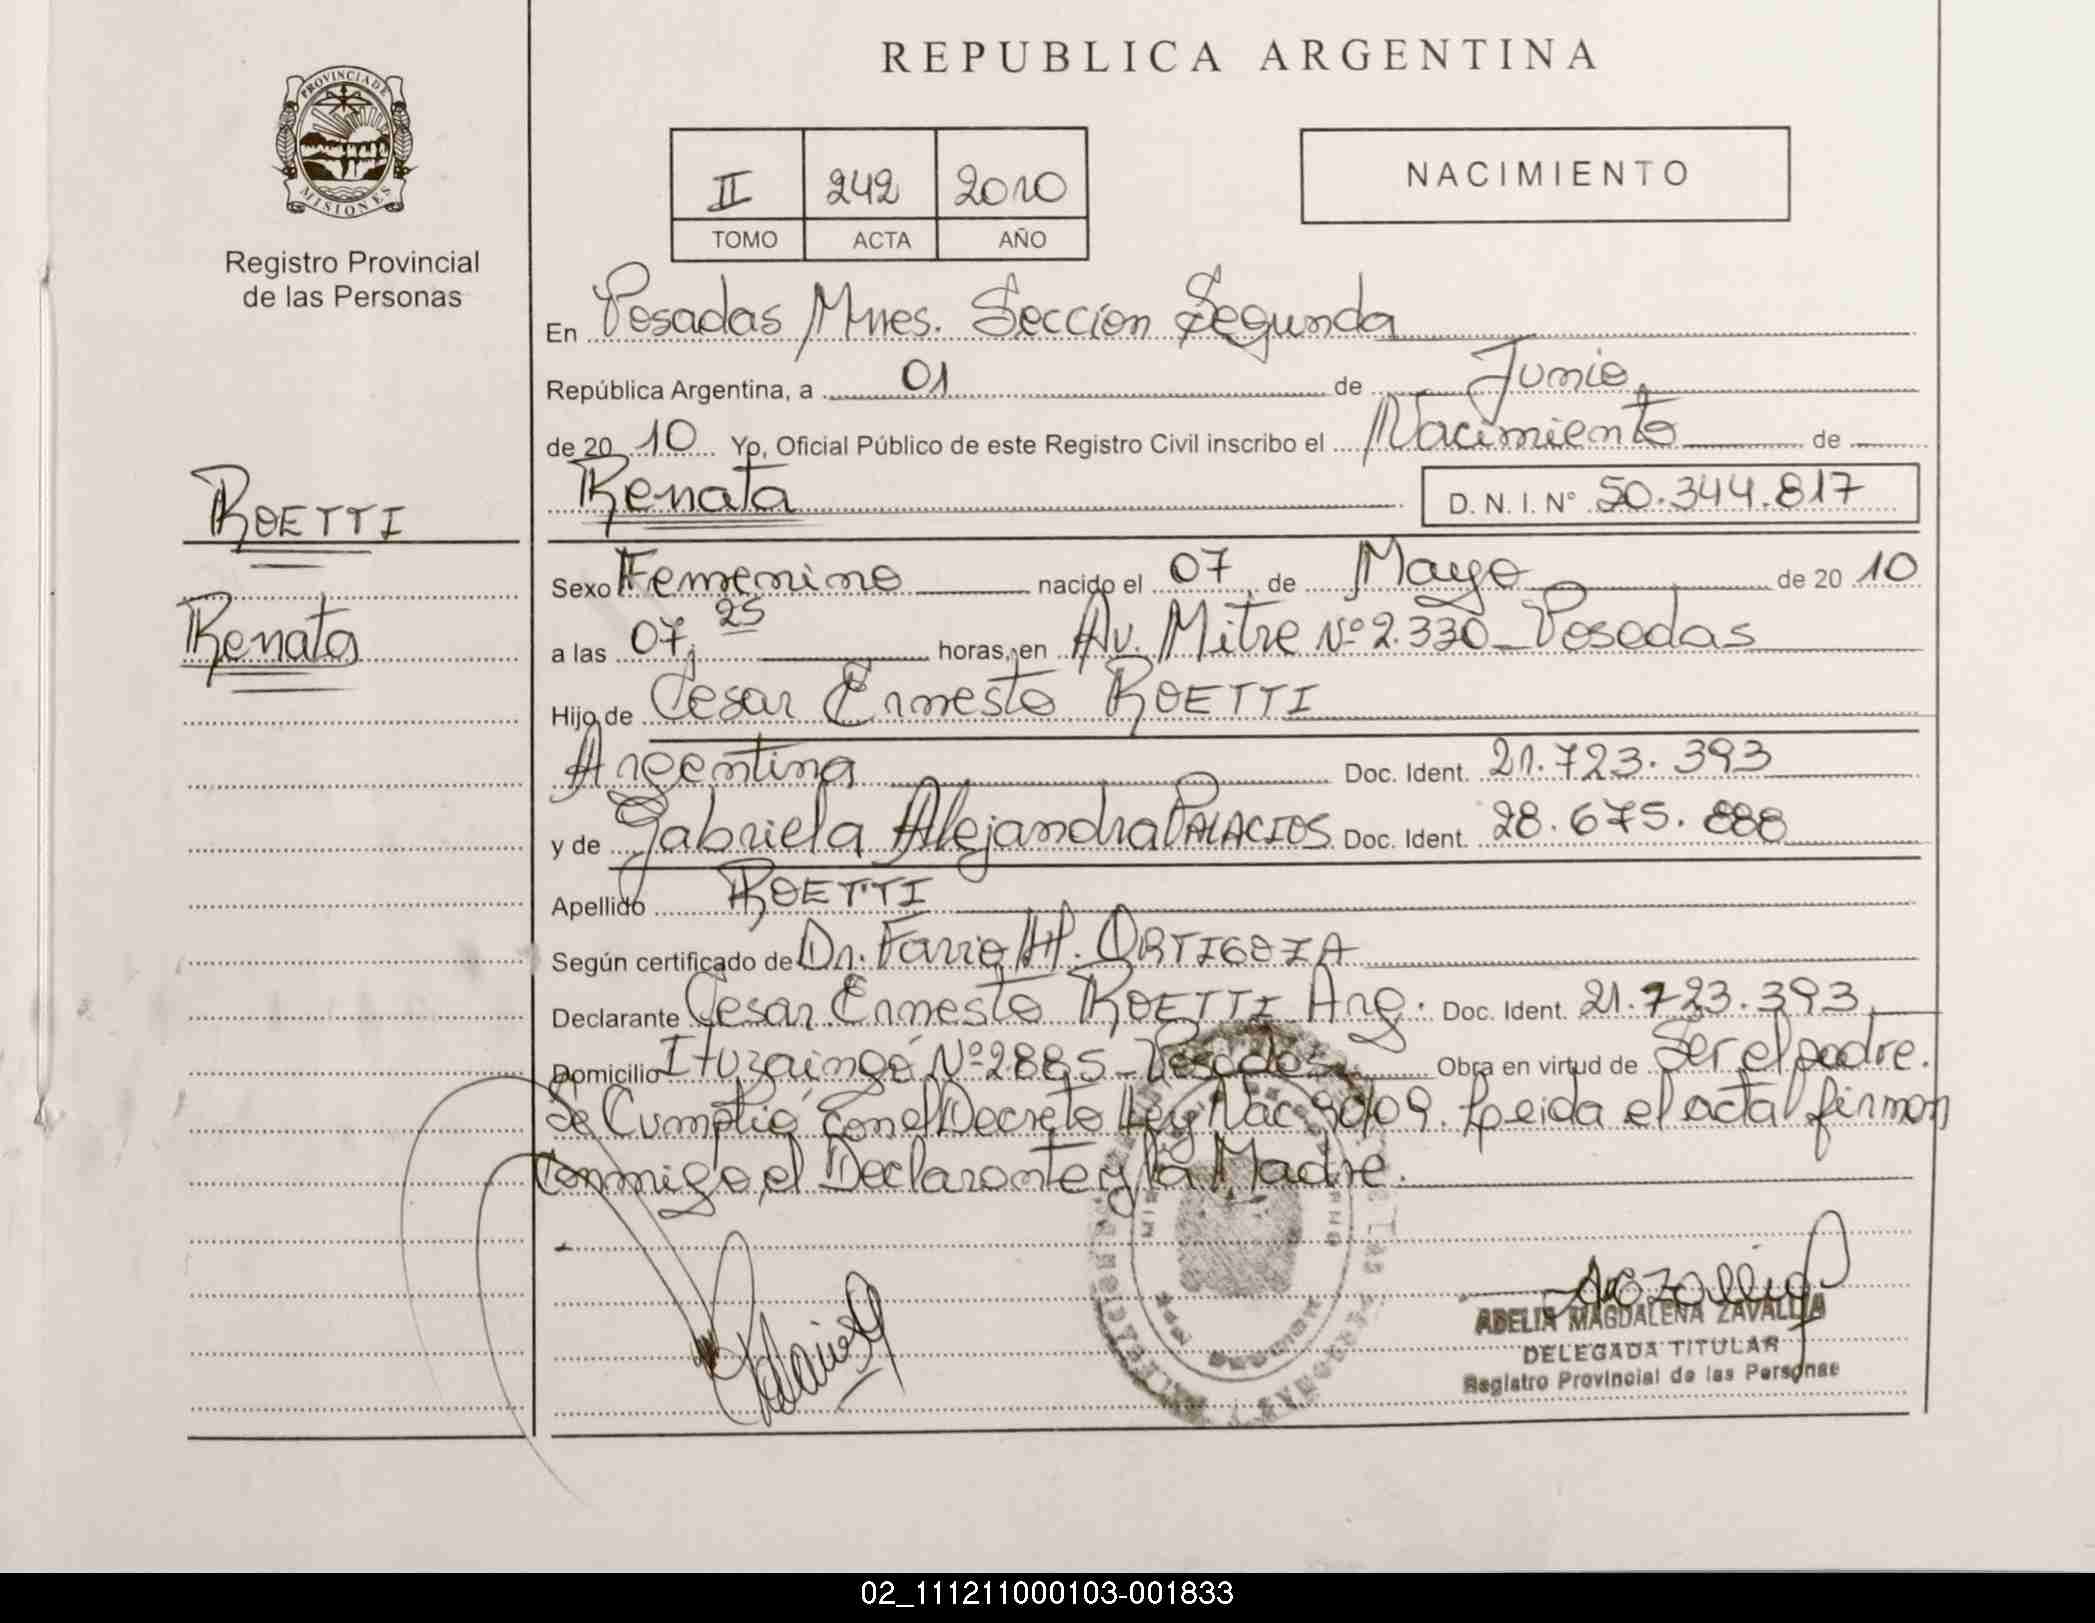 REPUBLICA ARGENTINA
PROVINCIA DE
MISIONES
Registro Provincial
de las Personas
II 242 2010
TOMO ACTA AÑO
NACIMIENTO
En Posadas Mnes. Sección Segunda
República Argentina, a 01 de Junio
de 20 10 Yo, Oficial Público de este Registro Civil inscribo el Nacimiento de
Renata D. N. I. N° 50.344.817
ROETTI
Renata
Sexo Femenino nacido el 07 de Mayo de 20 10
a las 07, 25 horas, en Av. Mitre Nº 2.330_Posadas
Hijo de Cesar Ernesto ROETTI
Argentina Doc. Ident. 21.723.393
y de Gabriela Alejandra PALACIOS Doc. Ident. 28.675.888
Apellido ROETTI
Según certificado de Dr. H. ORTIGOZA
Declarante Cesar Ernesto ROETTI Arg. Doc. Ident. 21.723.393
Domicilio Ituzaingó Nº 2885_Posadas Obra en virtud de Ser el padre.
Se Cumplió con el Decreto Ley Nac 9/09. Leida el acta firman
conmigo, el Declarante y la Madre.
ADELIA MAGDALENA ZAVALLIA
DELEGADA TITULAR
Registro Provincial de las Personas
02_111211000103-001833